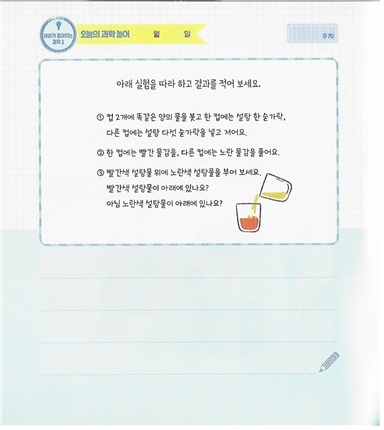 오늘의 과학 놀이 월 일
주차
아래 실험을 따라 하고 결과를 적어 보세요.
① 컵 2개에 똑같은 양의 물을 붓고 한 컵에는 설탕 한 숟가락,
다른 컵에는 설탕 다섯 숟가락을 넣고 저어요.
② 한 컵에는 빨간 물감을, 다른 컵에는 노란 물감을 풀어요.
③ 빨간색 설탕물 위에 노란색 설탕물을 부어 보세요.
빨간색 설탕물이 아래에 있나요?
아님 노란색 설탕물이 아래에 있나요?